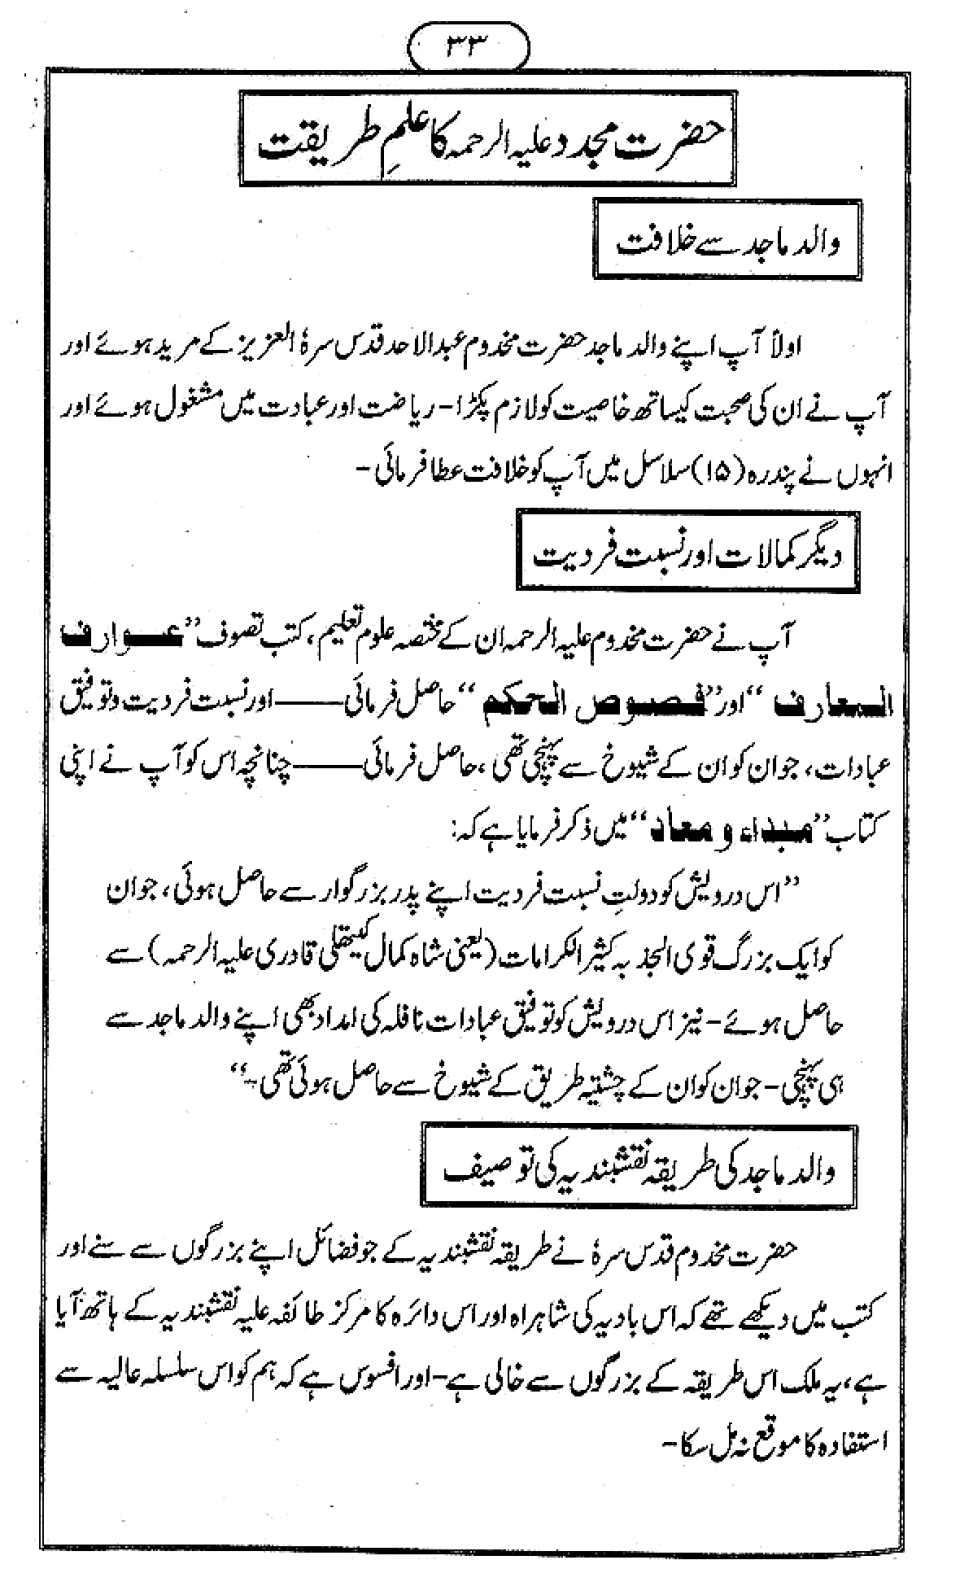 ۳۳
حضرت مجدد علیہ الرحمہ کا علمِ طریقت
والد ماجد سے خلافت
اولاً آپ اپنے والد ماجد حضرت مخدوم عبدالاحد قدس سرہٗ العزیز کے مرید ہوئے اور
آپ نے ان کی صحبت کیساتھ خاصیت کو لازم پکڑا- ریاضت اور عبادت میں مشغول ہوئے اور
انہوں نے پندرہ (۱۵) سلاسل میں آپ کو خلافت عطا فرمائی-
دیگر کمالات اور نسبت فردیت
آپ نے حضرت مخدوم علیہ الرحمہ ان کے مختصہ علوم تعلیم، کتب تصوف ”عوارف
المعارف“ اور ”فصوص الحکم“ حاصل فرمائی——اور نسبت فردیت و توفیق
عبادات، جو ان کو ان کے شیوخ سے پہنچی تھی، حاصل فرمائی——چنانچہ اس کو آپ نے اپنی
کتاب ”مبداء و معاد“ میں ذکر فرمایا ہے کہ:
”اس درویش کو دولتِ نسبت فردیت اپنے پدر بزرگوار سے حاصل ہوئی، جو ان
کو ایک بزرگ قوی الجذبہ کثیر الکرامات (یعنی شاہ کمال کیتھلی قادری علیہ الرحمہ) سے
حاصل ہوئے- نیز اس درویش کو توفیق عبادات نافلہ کی امداد بھی اپنے والد ماجد سے
ہی پہنچی- جو ان کو ان کے چشتیہ طریق کے شیوخ سے حاصل ہوئی تھی-“
والد ماجد کی طریقہ نقشبندیہ کی توصیف
حضرت مخدوم قدس سرہٗ نے طریقہ نقشبندیہ کے جو فضائل اپنے بزرگوں سے سنے اور
کتب میں دیکھے تھے کہ اس بادیہ کی شاہراہ اور اس دائرہ کا مرکز طائفہ علیہ نقشبندیہ کے ہاتھ آیا
ہے، یہ ملک اس طریقہ کے بزرگوں سے خالی ہے- اور افسوس ہے کہ ہم کو اس سلسلہ عالیہ سے
استفادہ کا موقع نہ مل سکا-